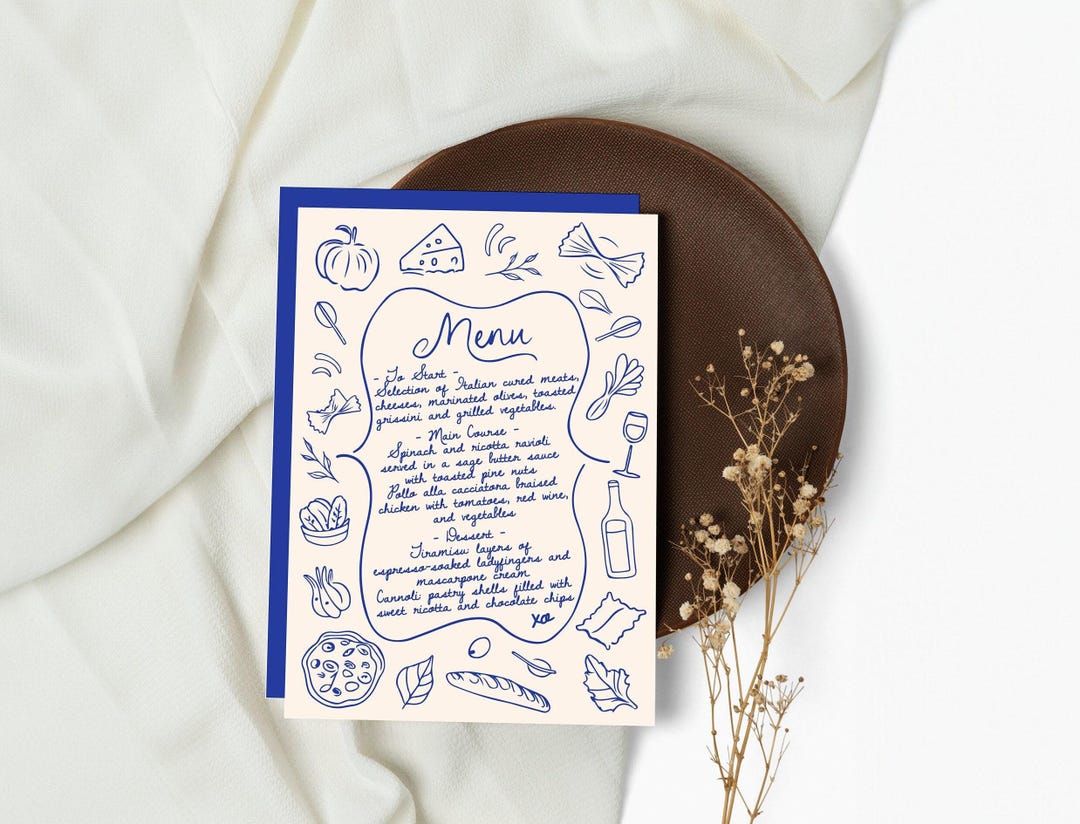 Menu
- To Start -
Selection of Italian cured meats,
cheeses, marinated olives, toasted
grissini and grilled vegetables.
- Main Course -
Spinach and ricotta ravioli
served in a sage butter sauce
with toasted pine nuts
Pollo alla cacciatora braised
chicken with tomatoes, red wine,
and vegetables
- Dessert -
Tiramisu layers of
espresso-soaked ladyfingers and
mascarpone cream
Cannoli pastry shells filled with
sweet ricotta and chocolate chips
xoxo